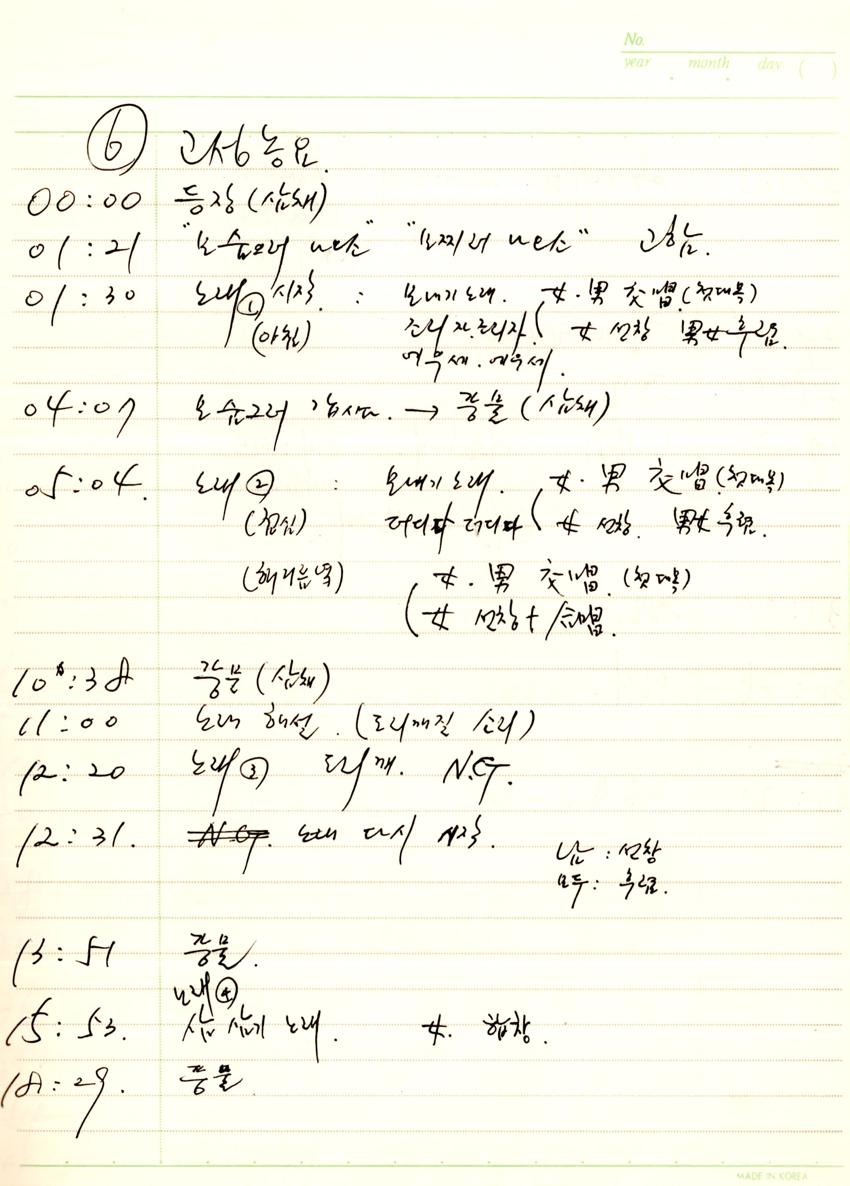 No.
year month day ( )
⑥ 고성농요.
00:00 등장 (삼채)
01:21 "모 쪄나 고함.
01:30 노래① 시작. : 모내기 노래. 女·男 交唱. (첫대목)
(아침) 조리자. 조리자. ( 女 선창 男女 후렴.
에우세. 에우세.
04:07 → 풍물 (삼채)
05:04. 노래② : 모내기 노래. 女·男 交唱 (첫대목)
(점심) 더디다 더디다 ( 女 선창. 男女 후렴.
(해거름녘) 女·男 交唱. (첫대목)
( 女 선창 + 合唱.
10:38 풍물 (삼채)
11:00 노래 해설. (도리깨질 소리)
12:20 노래③ 도리깨. N.G.
12:31. N.G. 노래 다시 시작.
남 : 선창
모두 : 후렴.
13:51 풍물.
노래④
15:53. 삼 삼기 노래. 女. 합창.
18:29. 풍물
MADE IN KOREA